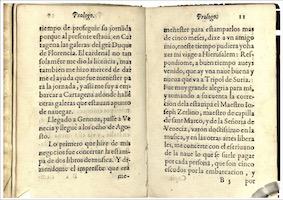 Prologo.
tiempo de proseguir su jornada
porque al presente estauã, en Car
tagena las galeras del grã Duque
de Florencia. El cardenal no tan
solamẽte me dio la licencia, mas
tambien me hizo merced de dar
me el ayuda que fue menester pa
ra la jornada, y assi me fuy a em-
barcar a Cartagena adonde hallè
las otras galeras que estauan apunto
de nauegar.
Llegado a Genoua, passè a Vene
cia y lleguè a los ocho de Ago-
sto.
Lo primero que hize de mis
negocios fue concertar la estam
pa de dos libros de musica. Y di
ziendome el impressor que era
me-
Prologo. 11
menester para estamparlos mas
de cinco meses, dixe a vn amigo
mio, en este tiempo pudiera yo ha
zer mi viage a Hierusalem: Res
pondiome, a buen tiempo aueys
venido, que ay vna naue buena y
nueua que va a Tripol de Suria.
Fue muy grande alegria para mi,
y tomando a su cuenta la correc-
cion dela estampa el Maestro Io-
seph Zerlino, maestro de capilla
de san Marco, y de la Señoria de
Venecia, varon doctissimo en la
musica, y en las otras artes libera
les, me concertè con el escriuano
de la naue lo que se suele pagar
por cada persona, que son cinco
escudos por la embarcacion, y
B 3 por